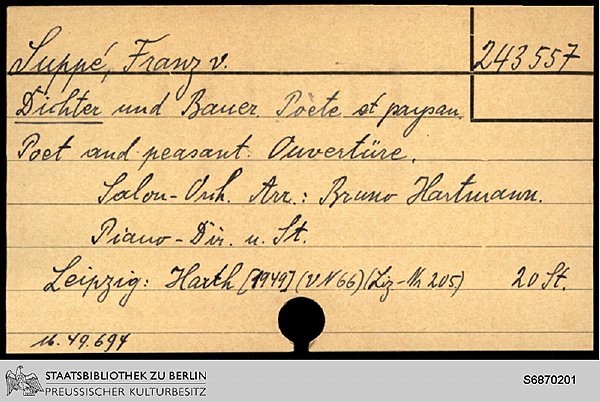 Suppé, Franz v.
243557
Dichter und Bauer. Poète et paysan.
Poet and peasant. Ouvertüre.
Salon-Orch. Arr.: Bruno Hartmann.
Piano-Dir. u. St.
Leipzig: Harth [1949] (VN 66) (Liz.-Nr 205) 20 St.
16.49.694
STAATSBIBLIOTHEK ZU BERLIN
PREUSSISCHER KULTURBESITZ
S6870201